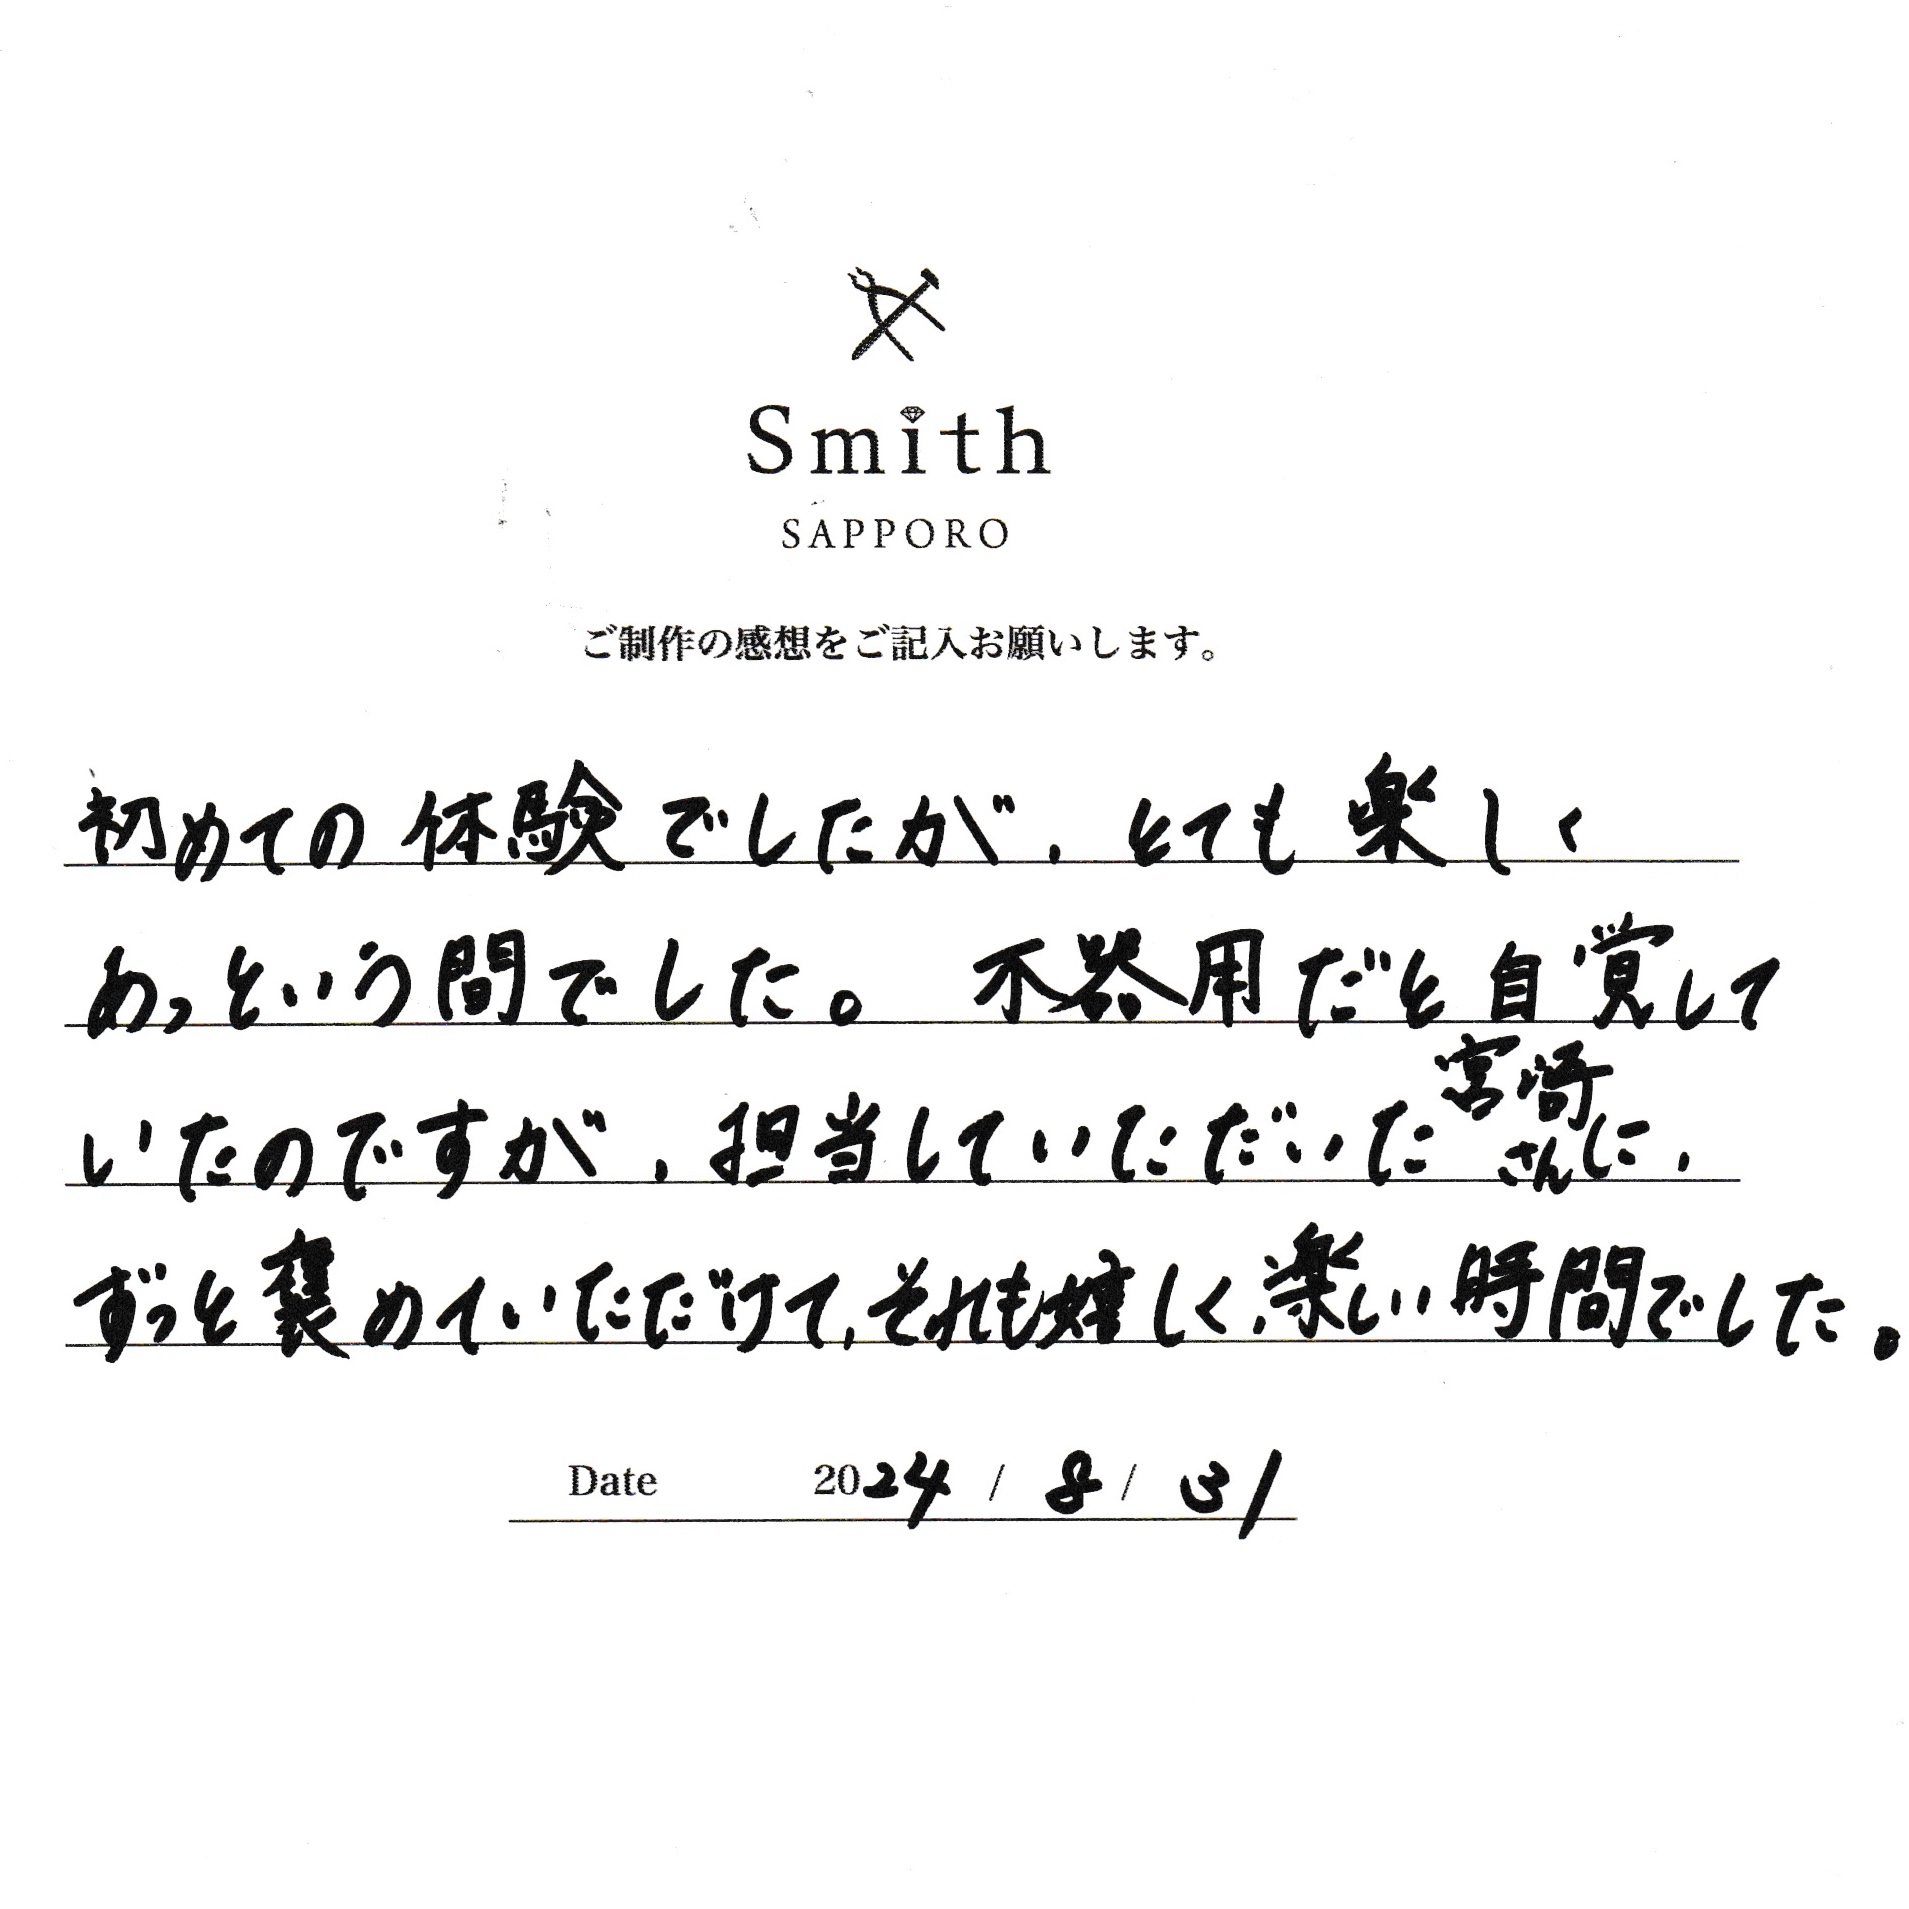 Smith
SAPPORO
ご制作の感想をご記入お願いします。
初めての体験でしたが、とても楽しく
あっという間でした。不器用だと自覚して
いたのですが、担当していただいた宮崎さんに、
ずっと褒めていただけて、それも嬉しく、楽しい時間でした。
Date 2024 / 8 / 31